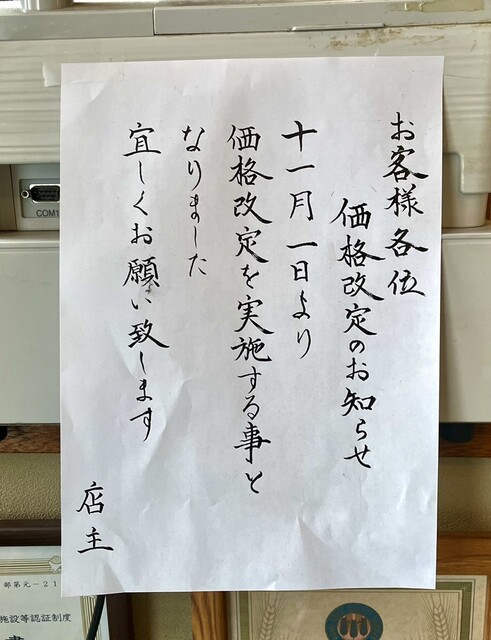 お客様各位
価格改定のお知らせ
十一月一日より
価格改定を実施する事と
なりました
宜しくお願い致します
店主
COM1
部第元－21
施設等認証制度